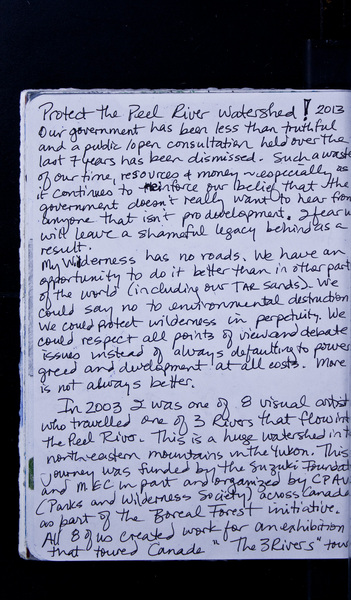 Protect the Peel River Watershed! 2013
Our government has been less than truthful
and a public/open consultation held over the
last 7 years has been dismissed. Such a waste
of our time, resources & money ~ especially as
it continues to reinforce our belief that the
government doesn't really want to hear from
anyone that isn't pro development. I fear w
will leave a shameful legacy behind as a
result.
My Wilderness has no roads. We have an
opportunity to do it better than in other part
of the world (including our TAR sands). We
could say no to environmental destruction
We could protect wilderness in perpetuity. We
could respect all points of view and debate
issues instead of always defaulting to power
greed and development at all costs. More
is not always better.
In 2003 I was one of 8 visual artist
who travelled one of 3 Rivers that flow int
the Peel River. This is a huge watershed in t
northeastern mountains in the Yukon. This
journey was funded by the Suzuki Foundat
and MEC in part and organized by CPAW
(Parks and Wilderness Society) across Canada
as part of the Boreal Forest initiative.
All 8 of us created work for an exhibition
that toured Canada "The 3 Rivers" tour